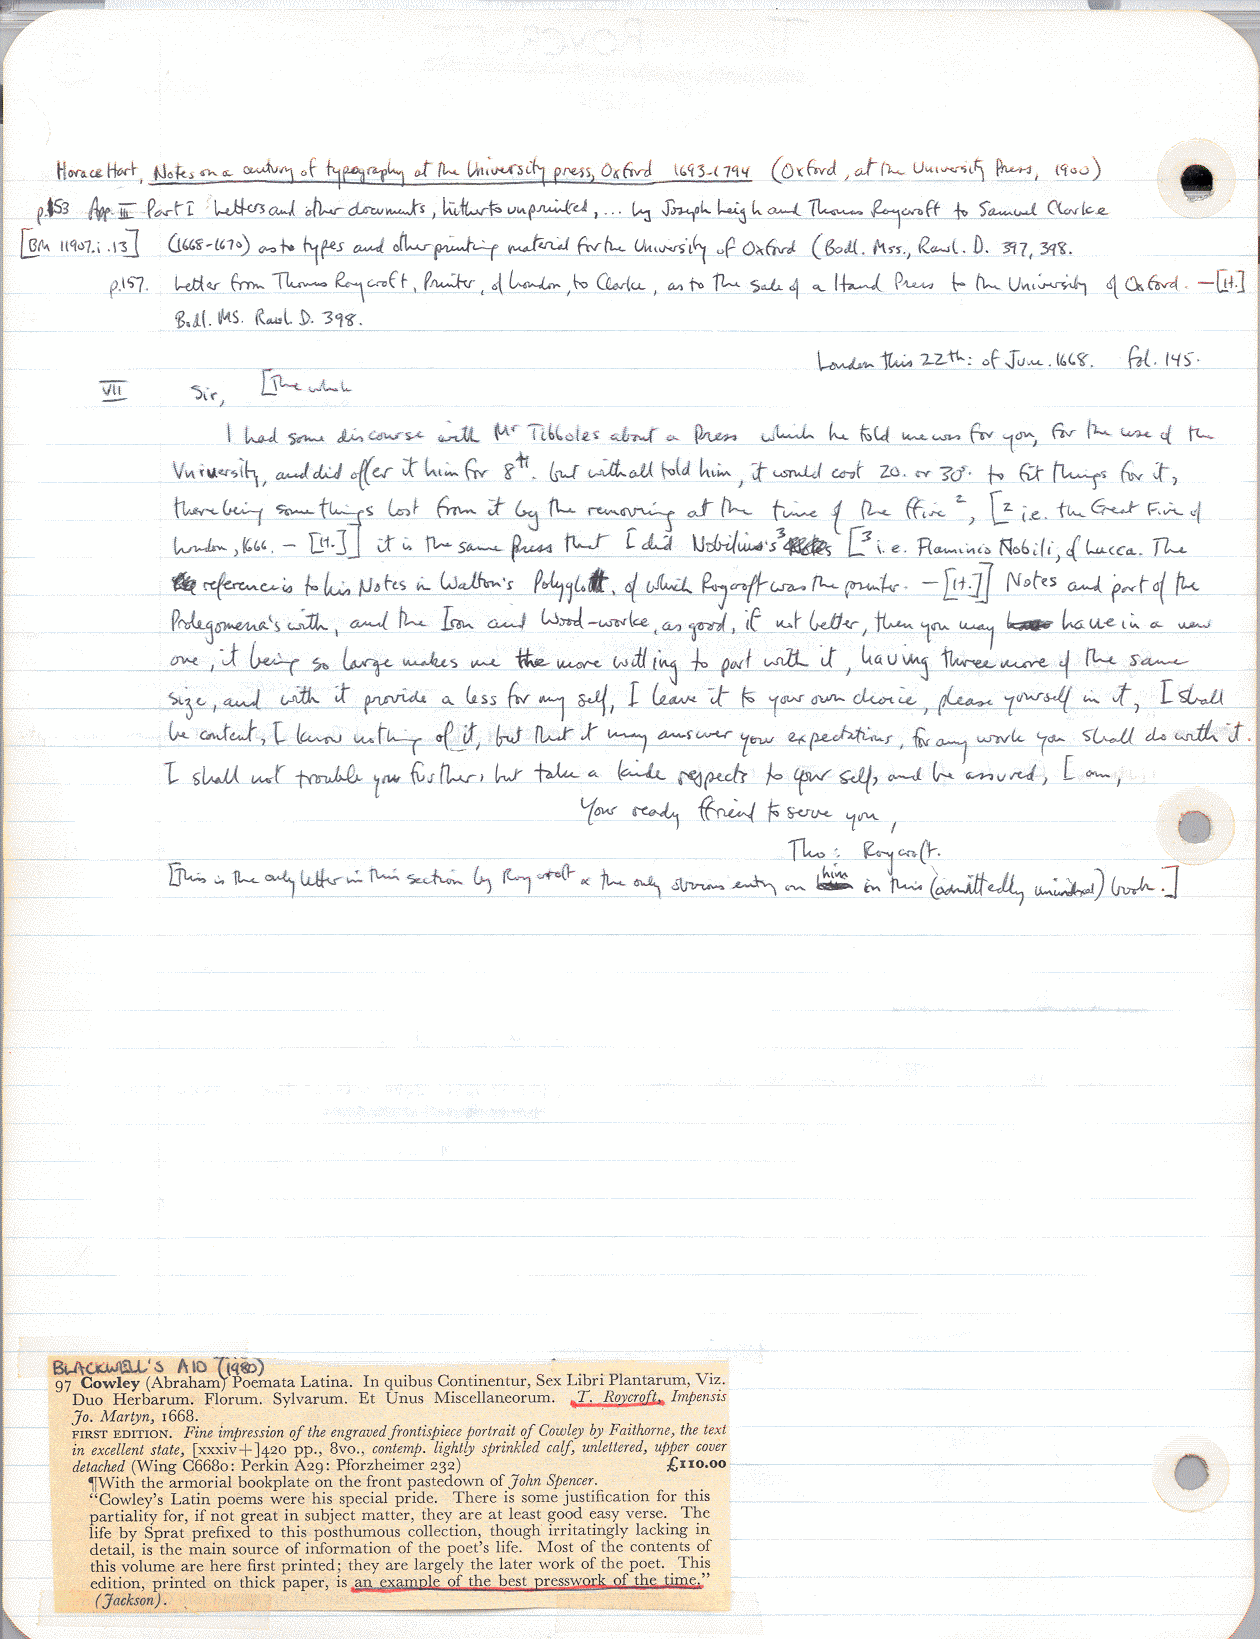 Horace Hart, Notes on a century of typography at the University press, Oxford 1693-1794 (Oxford, at the University Press, 1900)
p.153 App. III Part I Letters and other documents, hitherto unprinted, ... by Joseph Leigh and Thomas Roycroft to Samuel Clarke
[BM 11907.i.13] (1668-1670) as to types and other printing material for the University of Oxford (Bodl. Mss., Rawl. D. 397, 398.
p.157. Letter from Thomas Roycroft, Printer, of London, to Clarke, as to the sale of a Hand Press to the University of Oxford. —[H.]
Bodl. MS. Rawl. D. 398.
London this 22th: of June. 1668. fol. 145.
VII Sir, [The whole
I had some discourse with Mr Tibboles about a Press which he told me was for you, for the use of the
Vniversity, and did offer it him for 8ᵗʰ. but withall told him, it would cost 20. or 30ˢ. to fit things for it,
there being some things lost from it by the removing at the time of the ffire ², [² i.e. the Great Fire of
London, 1666. — [H.]] it is the same press that I did Nobilius's ³ [³ i.e. Flaminio Nobili, of Lucca. The
reference is to his Notes in Walton's Polyglott, of which Roycroft was the printer. — [H.]] Notes and part of the
Prolegomena's with, and the Iron and Wood-worke, as good, if not better, then you may have in a new
one, it being so large makes me the more willing to part with it, having three more of the same
size, and with it provide a less for my self, I leave it to your own choice, please yourself in it, I shall
be content, I know nothing of it, but that it may answer your expectations, for any work you shall do with it.
I shall not trouble you further, but take a kinde respects to your self, and be assured, I am,
Your ready ffriend to serve you,
Tho: Roycroft.
[This is the only letter in this section by Roycroft & the only obvious entry on him in this (admittedly unindexed) book.]
BLACKWELL'S A10 (1980)
97 Cowley (Abraham) Poemata Latina. In quibus Continentur, Sex Libri Plantarum, Viz.
Duo Herbarum. Florum. Sylvarum. Et Unus Miscellaneorum. T. Roycroft, Impensis
Jo. Martyn, 1668.
FIRST EDITION. Fine impression of the engraved frontispiece portrait of Cowley by Faithorne, the text
in excellent state, [xxxiv+]420 pp., 8vo., contemp. lightly sprinkled calf, unlettered, upper cover
detached (Wing C6680: Perkin A29: Pforzheimer 232) £110.00
¶With the armorial bookplate on the front pastedown of John Spencer.
"Cowley's Latin poems were his special pride. There is some justification for this
partiality for, if not great in subject matter, they are at least good easy verse. The
life by Sprat prefixed to this posthumous collection, though irritatingly lacking in
detail, is the main source of information of the poet's life. Most of the contents of
this volume are here first printed; they are largely the later work of the poet. This
edition, printed on thick paper, is an example of the best presswork of the time."
(Jackson).